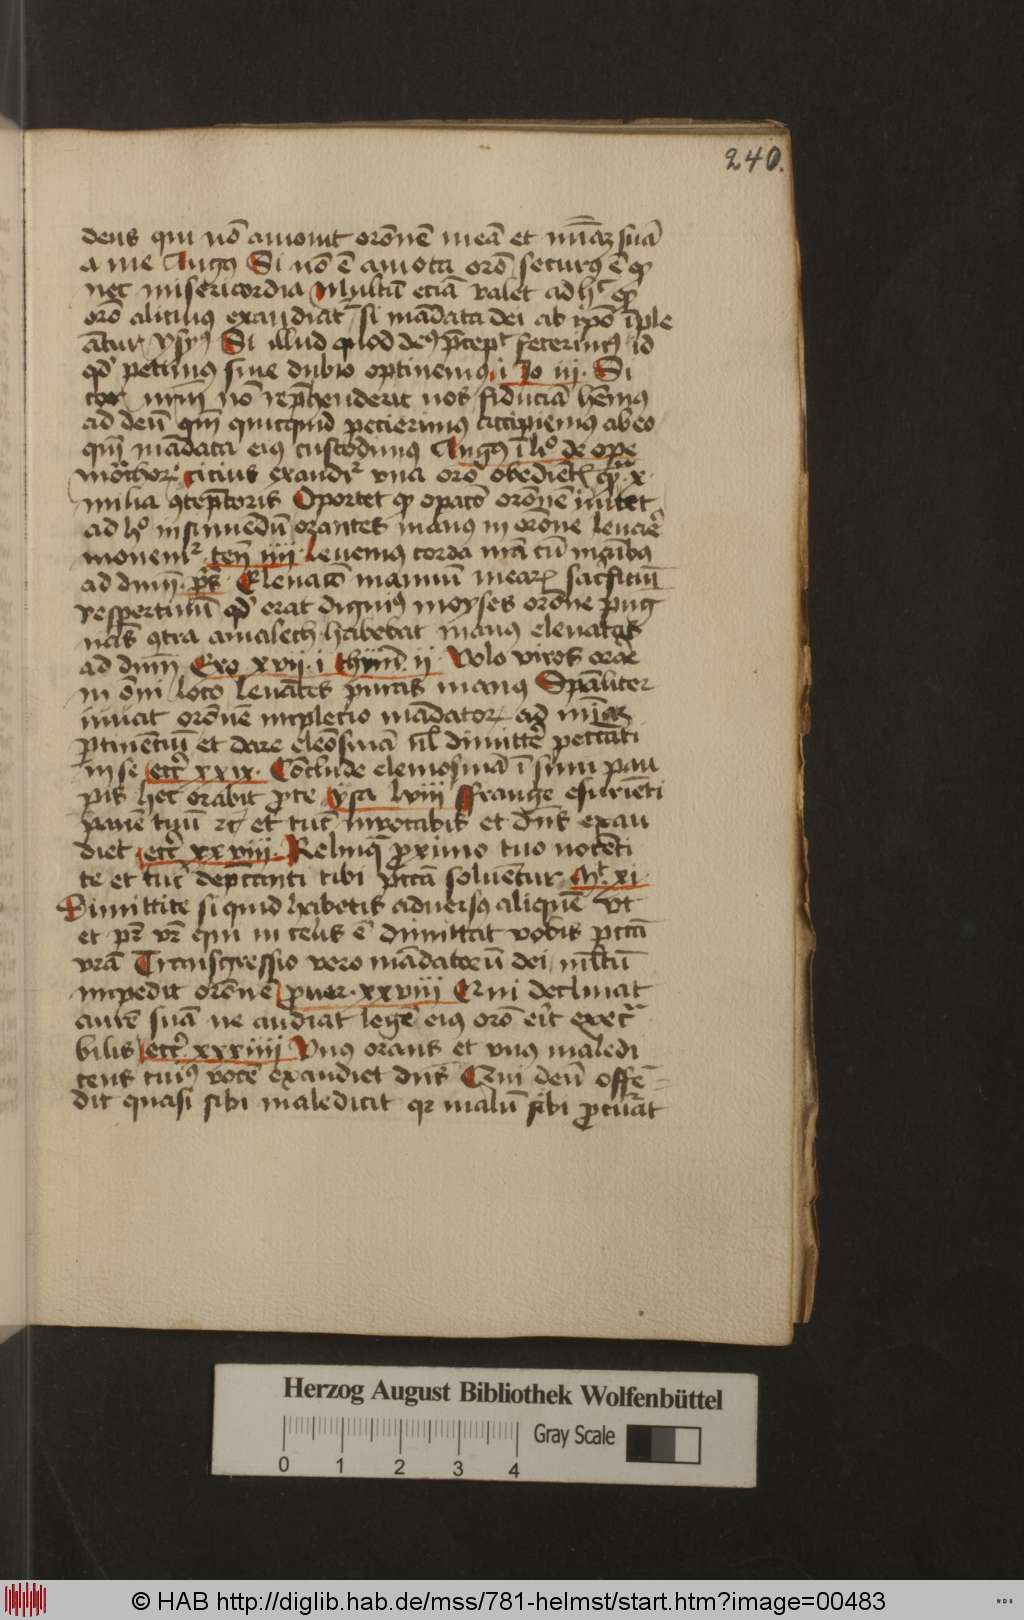 240.
deus qui nō amouit orōnē meā et mīaȝ suā
a me Augꝰ Si nō ē amota orō securꝰ ē ꝙ
nec misericordia Multū eciā valet ad hͨ ꝙ
orō alicuius exaudiat᷑ si mādata dei ab ip̄o īple
ātur Si illud quod deꝰ p̄cep̄ fecerimꝰ id
qd̄ petimꝰ sine dubio optinemꝰ i Jo iij. Si
cor nr̄m nō rep̄henderit nos fiduciā hēmꝰ
ad deū qm̄ quicquid petierimꝰ accipiemꝰ ab eo
qm̄ mādata eius custodimꝰ Augꝰ ī li° de ope
mōchoꝝ cicius exaudr᷑ vna orō obediēt ꝙ x
milia ꝯtēptoris Oportet ꝙ opacō orōnē iuuet
ad h° insinuēdū orantes manꝰ in orōne leuare
monem᷑ tren̄ iiij Leuemꝰ corda nr̄a cū maībꝰ
ad dnm̄ ps̄ Eleuacō manuū mearꝝ sac̄ficiū
vespertinū qd̄ erat digniꝰ moyses orōne pug
nās ꝯtra amalech habebat manꝰ eleuatas
ad dnm̄ Exo xvij. i thym̄ ij Volo viros orare
in ōni loco leuātes puras manꝰ Spāliter
iuuat orōnē inpletio mādatoꝝ ad mīaȝ
ptinētiū et dare eleōsinā ul̓ dimittē peccāti
in se ecc̄i xxix. Cōclude elemosinā ī sinu pau
pis hec orabit p̄ te ysa lviij ffrange esuriēti
panē tuū ⁊c̄ et tūc inuocabis et dn̄s exau
diet ecc̄i xxviij. Relinq̄ ꝓximo tuo nocēti
te et tūc dep̄canti tibi pctā soluētur Mͬ xi.
Dimittite si quid habetis aduersꝰ aliquē vt
et pr̄ vr̄ qui in celis ē dimittat vobis pctā
vrā Transgressio vero mādatorū dei ml̄tū
inpedit orōnē ꝓuer. xxviij Qui declinat
aurē suā ne audiat legē eiꝰ orō eīt exec̄
bilis ecc̄i. xxxiiij Vnꝰ orans et vnꝰ maledi
cens cuiꝰ vocē exaudiet dn̄s Qui deū offē
dit quasi sibi maledicit qr malū sibi ꝓcurat
Herzog August Bibliothek Wolfenbüttel
Gray Scale
0 1 2 3 4
© HAB http://diglib.hab.de/mss/781-helmst/start.htm?image=00483